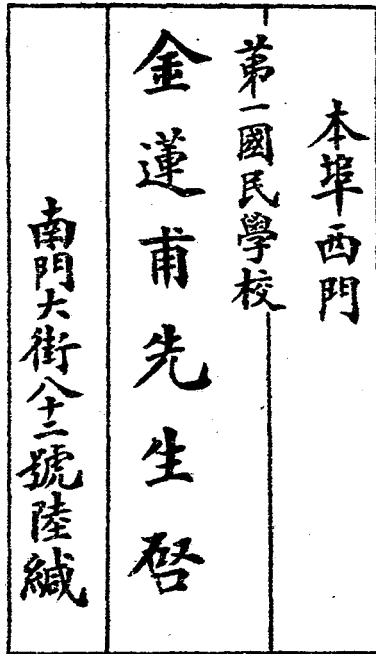 本埠西門
第一國民學校
金蓮甫先生啓
南門大街八十二號陸緘